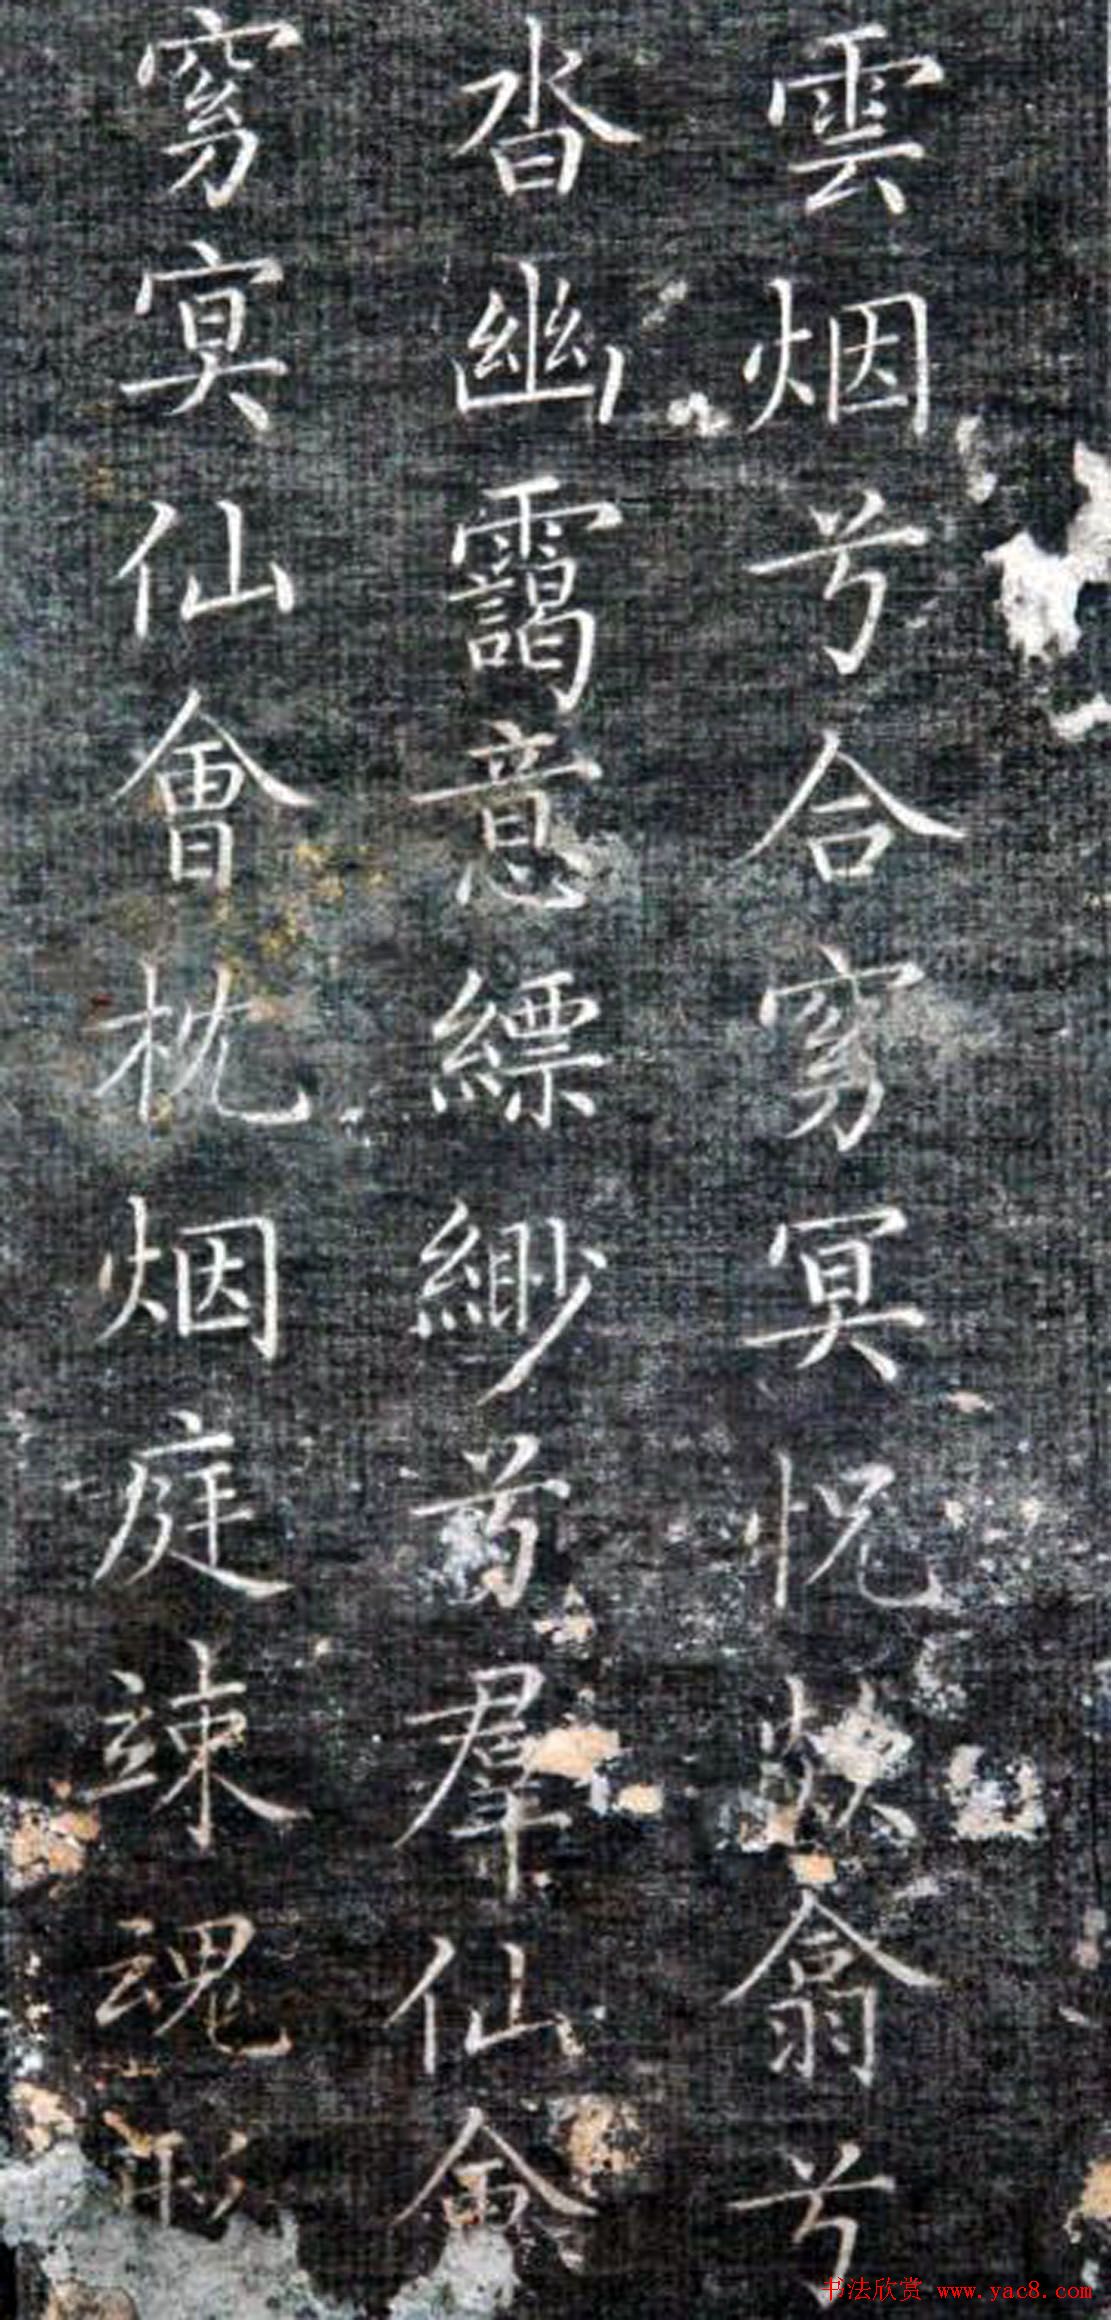 雲烟兮合窈冥恍欻翕兮
沓幽靄意縹緲兮羣仙會
窈冥仙會枕烟庭竦魂形
书法欣赏 www.yac8.com